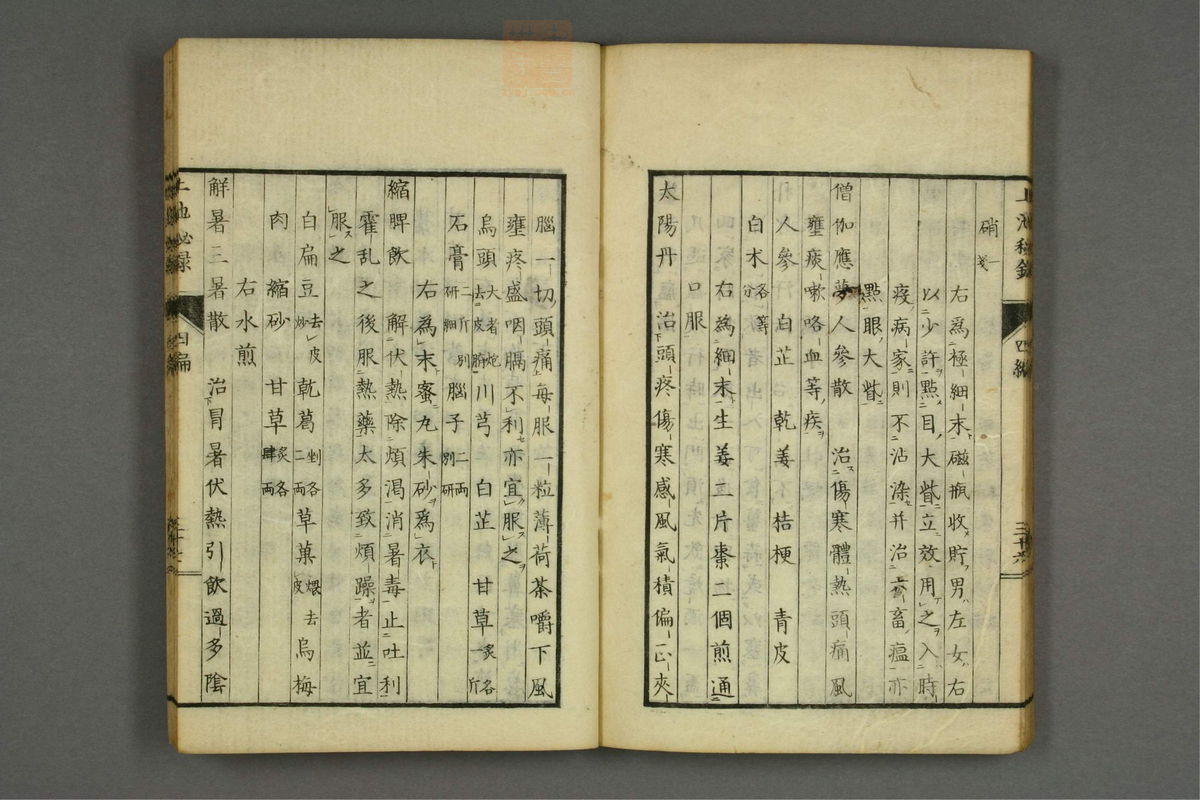 硝一箋
右爲極細末磁瓶收貯男左女右
以少許點目大眥立效用之入時
疫病家則不沾染并治六畜瘟亦
點眼大眥
僧伽應夢人參散 治傷寒體熱頭痛風
壅痰嗽咯血等疾
人參 白芷 乾姜 桔梗 青皮
白朮各等分
右爲細末生姜二片棗二個煎通
口服
太陽丹 治頭疼傷寒感風氣積偏正夾
腦一切頭痛每服一粒薄荷茶嚼下風
壅疼盛咽膈不利亦宜服之
烏頭大者炮去皮臍 川芎 白芷 甘草各一斤炙
石膏二斤別研細 腦子二兩別研
右爲末蜜丸朱砂爲衣
縮脾飲 解伏熱除煩渴消暑毒止吐利
霍乱之後服熱藥太多致煩躁者並宜
服之
白扁豆去皮炒 乾葛剉各二兩 草菓煨去皮 烏梅
肉 縮砂 甘草炙各肆兩
右水煎
解暑三暑散 治冒暑伏熱引飲過多陰
上池秘録 四編